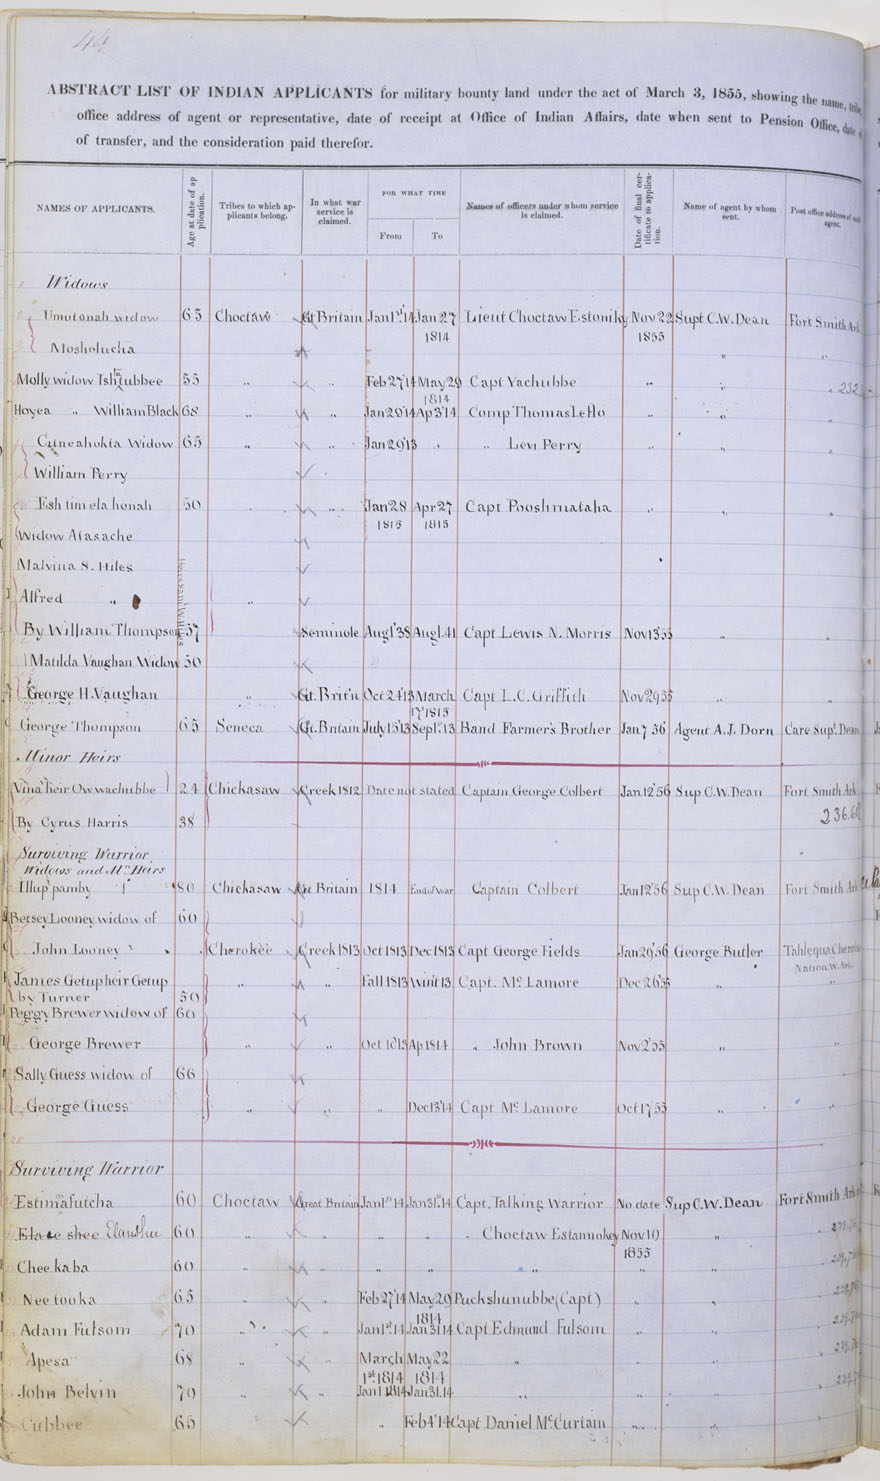 44
ABSTRACT LIST OF INDIAN APPLICANTS for military bounty land under the act of March 3, 1855, showing the name,
office address of agent or representative, date of receipt at Office of Indian Affairs, date when sent to Pension Office, date of
of transfer, and the consideration paid therefor.
NAMES OF APPLICANTS. Age at date of application. Tribes to which applicants belong. In what war service is claimed. FOR WHAT TIME From To Names of officers under whom service is claimed. Date of final certificate to application. Name of agent by whom sent. Post office address of such agent.
Widows
Umutonah widow 65 Choctaw Gt Britain Jan 1st 14 Jan 27 1814 Lieut Choctaw Estoniky Nov 22 1855 Supt C.W. Dean Fort Smith Ark
Mosholucha " "
Molly widow Ishtubbee 55 " " Feb 27 14 May 29 1814 Capt Yachubbe " " " 232
Hoyea " William Black 68 " " Jan 29 '14 Ap 3 '14 Comp Thomas Leflo " " "
Cuneahokta Widow 65 " " Jan 29 '13 " " Levi Perry " " "
William Perry
Esh tim ela honah 50 " " Jan 28 1815 Apr 27 1815 Capt Pooshmataha " " "
Widow Atasache
Malvina S. Hiles
Alfred " "
By William Thompson 57 Seminole Aug 1 '38 Aug 1. 41 Capt Lewis N. Morris Nov 13 '55 " "
Matilda Vaughan Widow 50
George H. Vaughan " Gt. Brit'n Oct 24 '13 March 17 1815 Capt L. C. Griffith Nov 29 55 " "
George Thompson 65 Seneca Gt. Britain July 15 '13 Sept 1. 13 Band Farmer's Brother Jan 7 56 Agent A.J. Dorn Care Supt. Dean
Minor Heirs
Vina heir Owwachubbe 24 Chickasaw Creek 1812 Date not stated Captain George Colbert Jan 12 '56 Sup C.W. Dean Fort Smith Ark
By Cyrus Harris 38 236.
Surviving Warrior
Widows and Mr. Heirs
Illup pamby 80 Chickasaw Gt Britain 1814 End of War Captain Colbert Jan 12 '56 Sup C.W. Dean Fort Smith Ark
Betsey Looney widow of 60
John Looney Cherokee Creek 1813 Oct 1813 Dec 1813 Capt George Fields Jan 29 '56 George Butler Tahlequa Cherokee Nation W. Ark.
James Getup heir Getup " " Fall 1813 Wint 13 Capt. Mc Lamore Dec 26 '55 " "
by Turner 50
Peggy Brewer widow of 60
George Brewer " " Oct 1813 Ap 1814 " John Brown Nov 2 '55 " "
Sally Guess widow of 66
George Guess " " " Dec 13 '14 Capt Mc Lamore Oct 17 '55 " "
Surviving Warrior
Estimafutcha 60 Choctaw Great Britain Jan 1st 14 Jan 31. 14 Capt. Talking Warrior No date Sup C.W. Dean Fort Smith Ark
Elate shee 60 " " " " " Choctaw Estannokey Nov 10 1855 " "
Chee ka ba 60 " " " " " " " "
Nee tooka 65 " " Feb 27 '14 May 29 1814 Puckshunubbe (Capt) " " "
Adam Fulsom 70 " " Jan 1st. 14 Jan 31 14 Capt Edmund Fulsom " " "
Apesa 68 " " March 1st 1814 May 22 1814 " " " "
John Belvin 70 " " Jan 1 1814 Jan 31. 14 " " " "
Cubbee 65 " " Feb 4 '14 Capt Daniel McCurtain " "